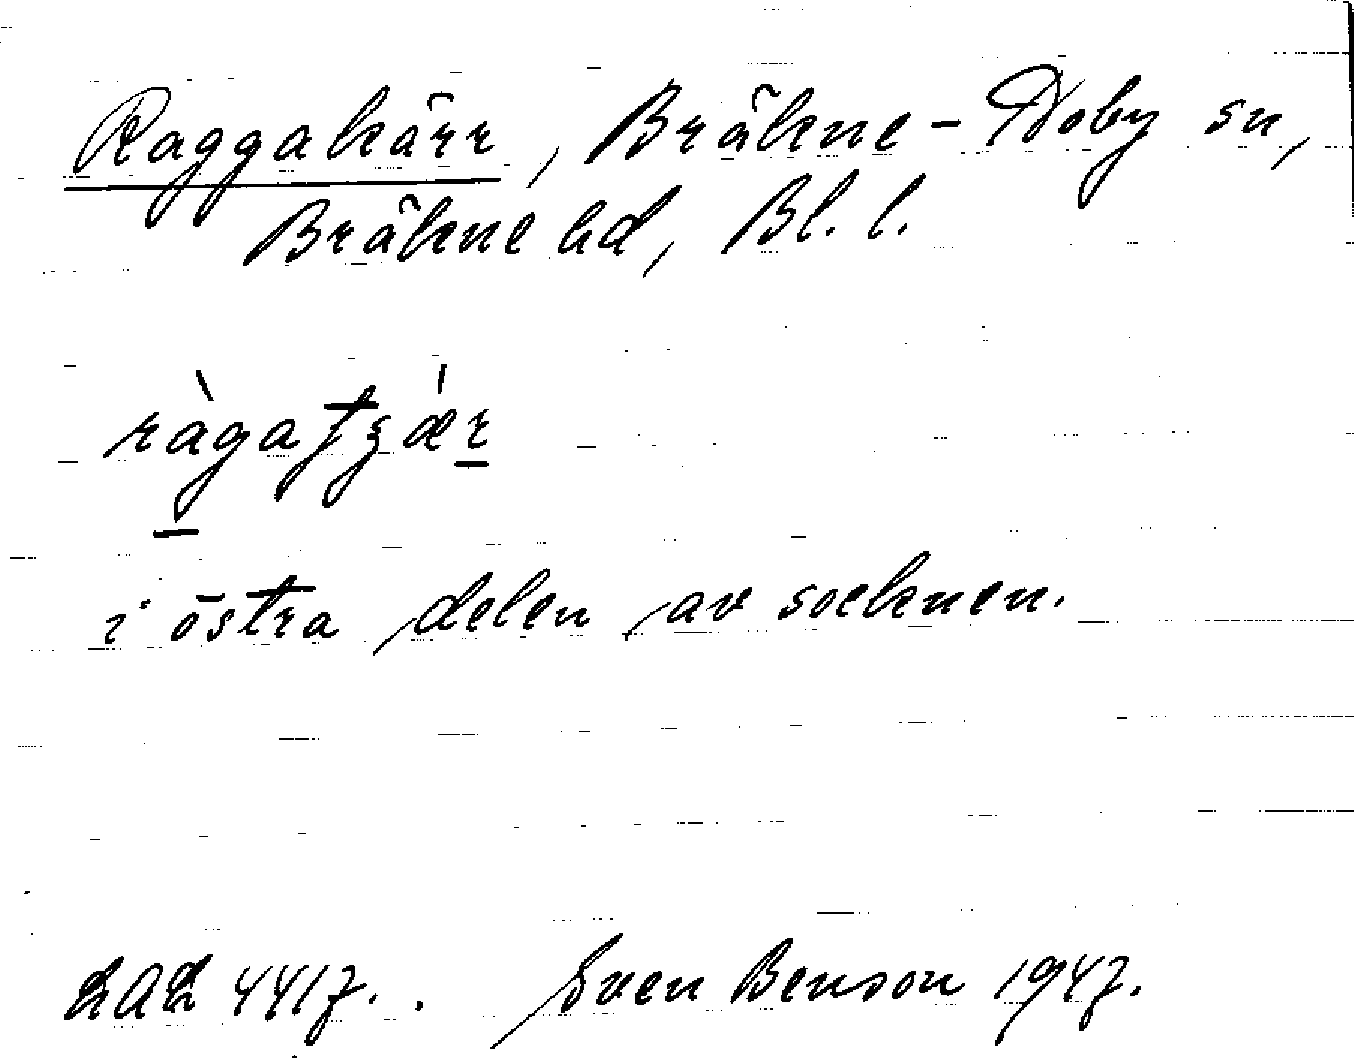 Raggakärr, Bräkne-Hoby sn,
Bräkne hd, Bl. l.
i östra delen av socknen.
LAL 4417. Sven Benson 1947.